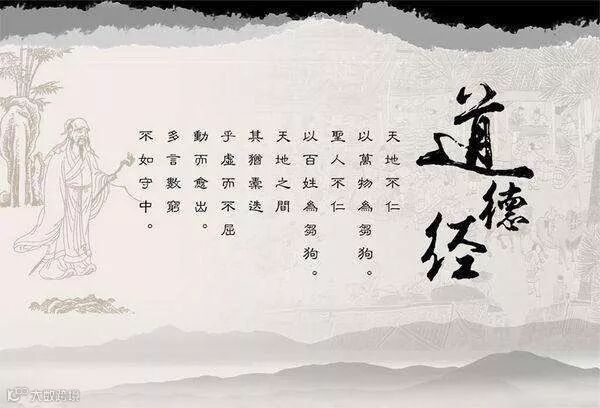 道德经
天地不仁
以萬物為芻狗。
聖人不仁
以百姓為芻狗。
天地之間
其猶橐迭
乎虛而不屈
動而愈出。
多言數窮
不如守中。
大数跨境